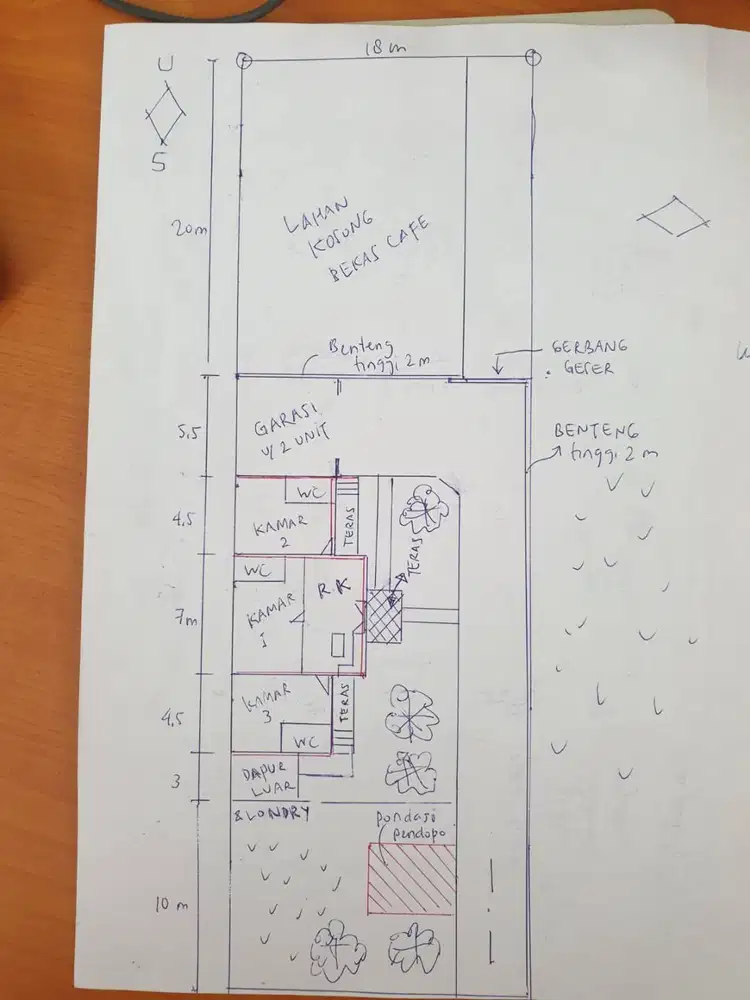 18 m
U
S
20m
LAHAN
KOSONG
BEKAS CAFE
Benteng
tinggi 2 m
GERBANG
GESER
5,5
GARASI
U/ 2 UNIT
BENTENG
tinggi 2 m
4,5
WC
KAMAR
2
TERAS
TERAS
WC
R.K
7m
KAMAR
1
4,5
KAMAR
3
TERAS
WC
3
DAPUR
LUAR
& LONDRY
pondasi
pendopo
10 m